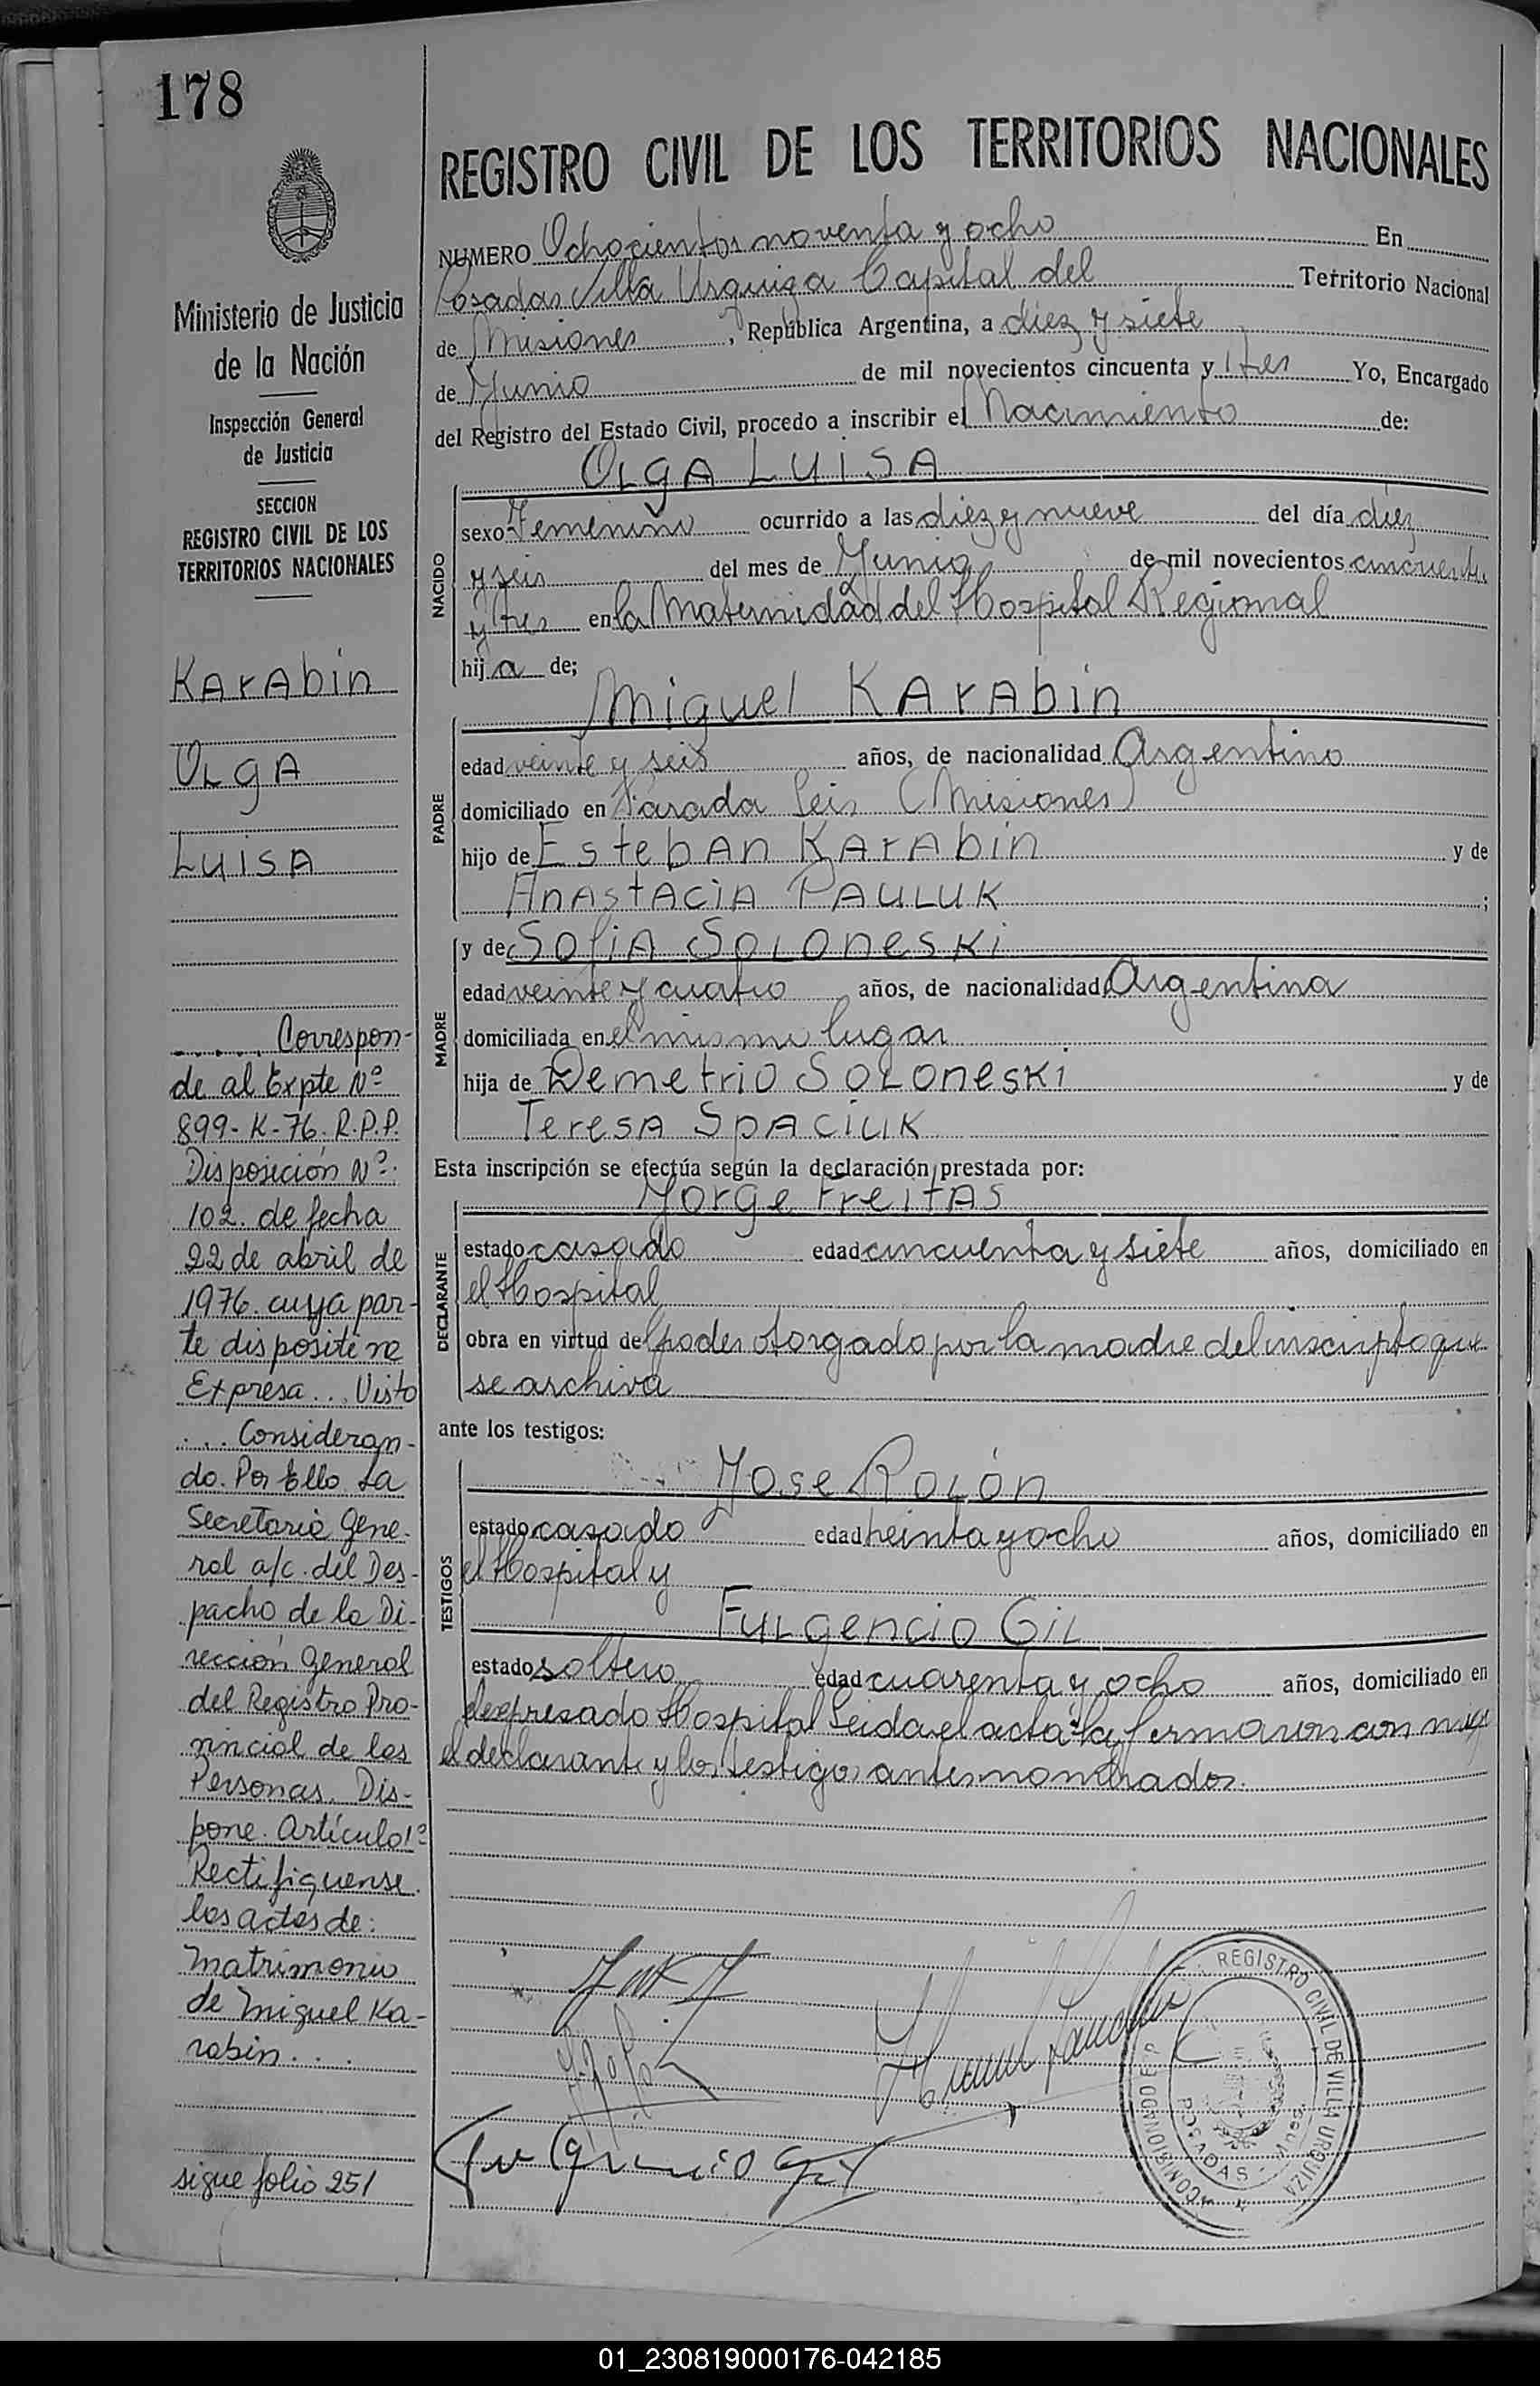 178
Ministerio de Justicia
de la Nación
Inspección General
de Justicia
SECCION
REGISTRO CIVIL DE LOS
TERRITORIOS NACIONALES
Karabin
Olga
Luisa
...... Correspon-
de al Expte Nº
899-K-76. R.P.P.
Disposición Nº.
102. de fecha
22 de abril de
1976. cuya par-
te dispositiva
Expresa... Visto
... Consideran-
do. Por Ello. La
Secretaria Gene-
ral a/c. del Des-
pacho de la Di-
rección General
del Registro Pro-
vincial de las
Personas. Dis-
pone. Artículo 1º
Rectifiquense
las actas de:
Matrimonio
de Miguel Ka-
rabin...
sigue folio 251
REGISTRO CIVIL DE LOS TERRITORIOS NACIONALES
NUMERO Ochocientos noventa y ocho En
Posadas Villa Urquiza Capital del Territorio Nacional
de Misiones, República Argentina, a diez y siete
de Junio de mil novecientos cincuenta y tres Yo, Encargado
del Registro del Estado Civil, procedo a inscribir el Nacimiento de:
OLGA LUISA
NACIDO
sexo Femenino ocurrido a las diez y nueve del día diez
y seis del mes de Junio de mil novecientos cincuenta
y tres en la Maternidad del Hospital Regional
hija de;
Miguel Karabin
PADRE
edad veinte y seis años, de nacionalidad Argentino
domiciliado en Parada Leis (Misiones)
hijo de Esteban Karabin y de
Anastacia Pauluk;
MADRE
y de Sofia Soloneski
edad veinte y cuatro años, de nacionalidad Argentina
domiciliada en el mismo lugar
hija de Demetrio Soloneski y de
Teresa Spaciuk
Esta inscripción se efectúa según la declaración prestada por:
Jorge Freitas
DECLARANTE
estado casado edad cincuenta y siete años, domiciliado en
el Hospital
obra en virtud del poder otorgado por la madre del inscripto que
se archiva
ante los testigos:
Jose Rolón
TESTIGOS
estado casado edad treinta y ocho años, domiciliado en
el Hospital y
Fulgencio Gil
estado soltero edad cuarenta y ocho años, domiciliado en
el expresado Hospital Leida el acta la firmaron con migo
el declarante y los testigos antes nombrados.
Fulgencio Gil
REGISTRO CIVIL DE VILLA URQUIZA
POSADAS
01_230819000176-042185